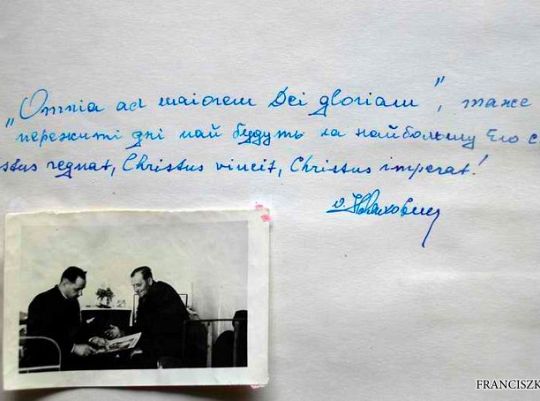 „Omnia ad maiorem Dei gloriam", таже
пережиті дні най будуть на найбольшу Єго с
stus regnat, Christus vincit, Christus imperat!
FRANCISZK